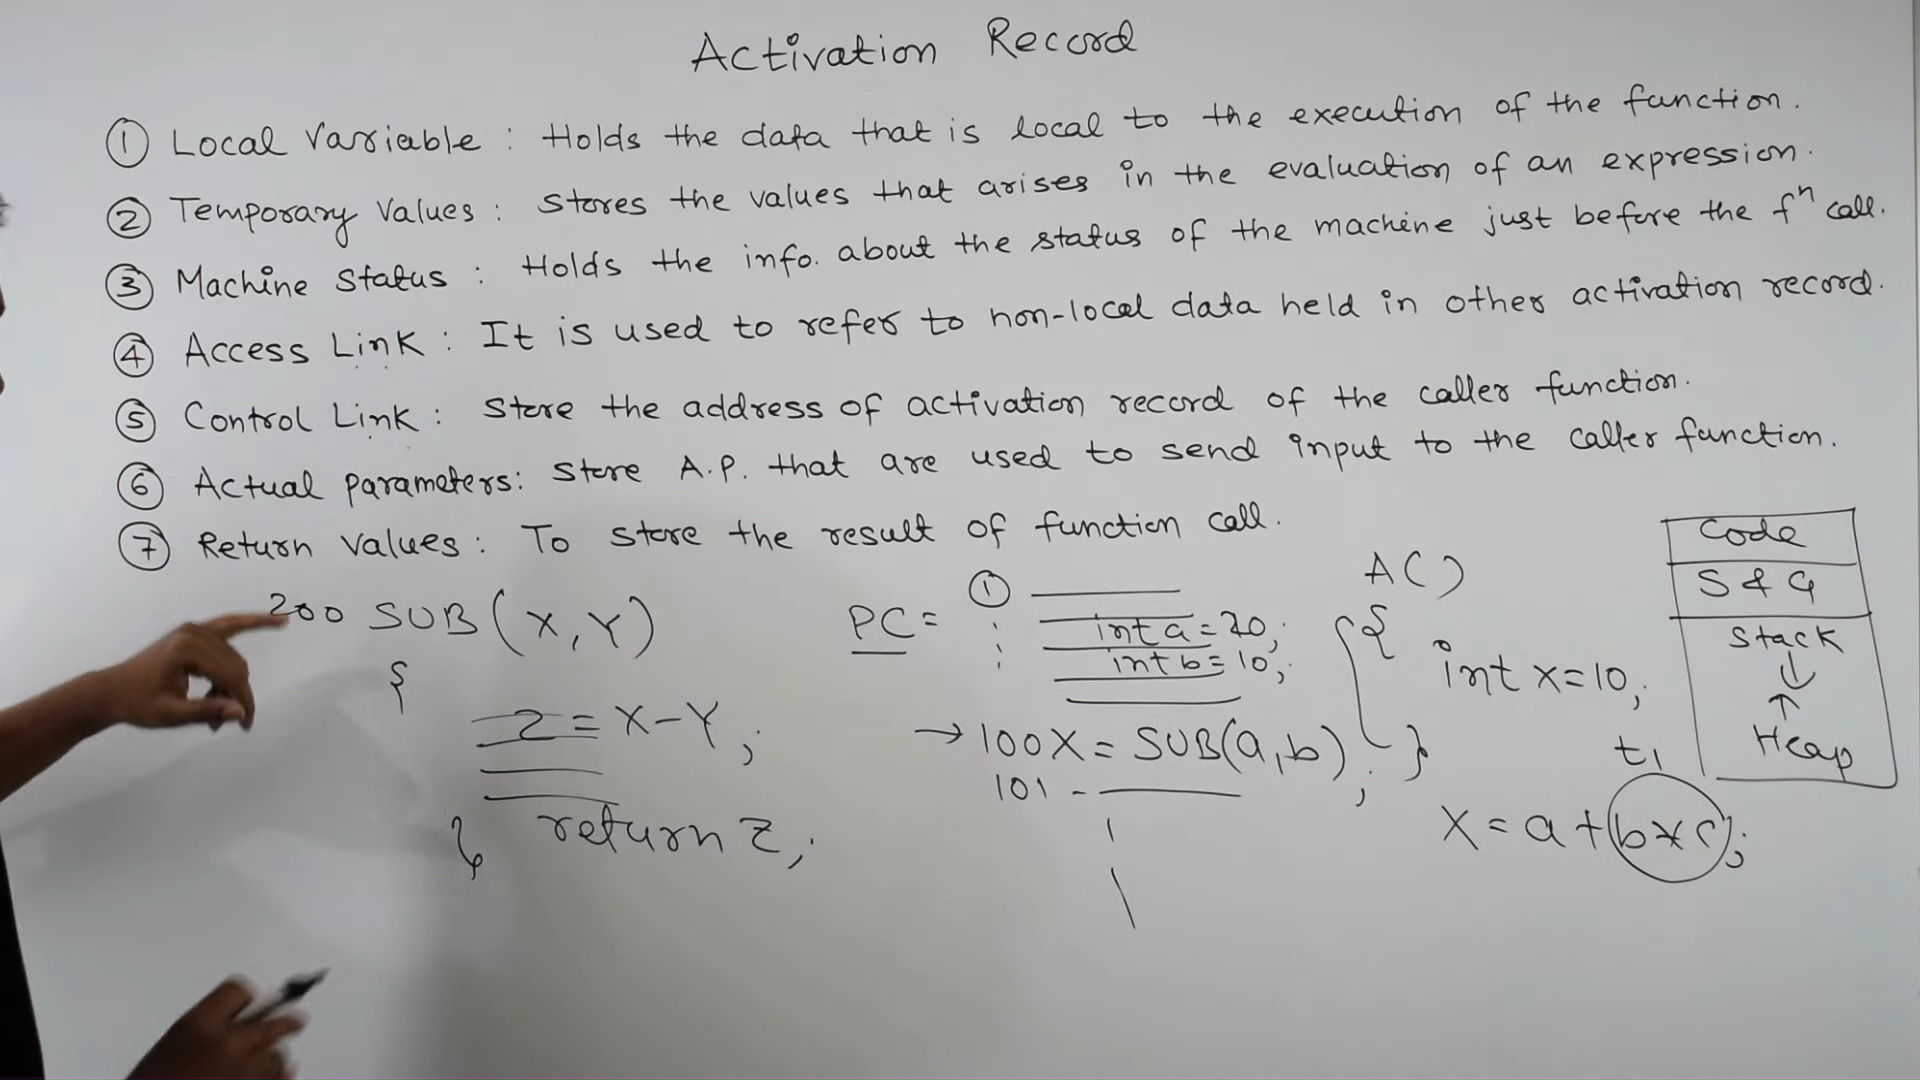 Activation Record
① Local Variable : Holds the data that is local to the execution of the function.
② Temporary Values : Stores the values that arises in the evaluation of an expression.
③ Machine Status : Holds the info. about the status of the machine just before the fⁿ call.
④ Access Link : It is used to refer to non-local data held in other activation record.
⑤ Control Link : Store the address of activation record of the caller function.
⑥ Actual parameters: Store A.P. that are used to send input to the caller function.
⑦ Return Values : To store the result of function call.
200 SUB(X,Y)
{
Z = X-Y;
return Z;
}
PC =
①
int a = 20;
int b = 10;
→ 100 X = SUB(a,b);
101 -
A()
{
int x=10;
}
t1
X = a + (b*c);
Code
S & G
Stack
↓
↑
Heap